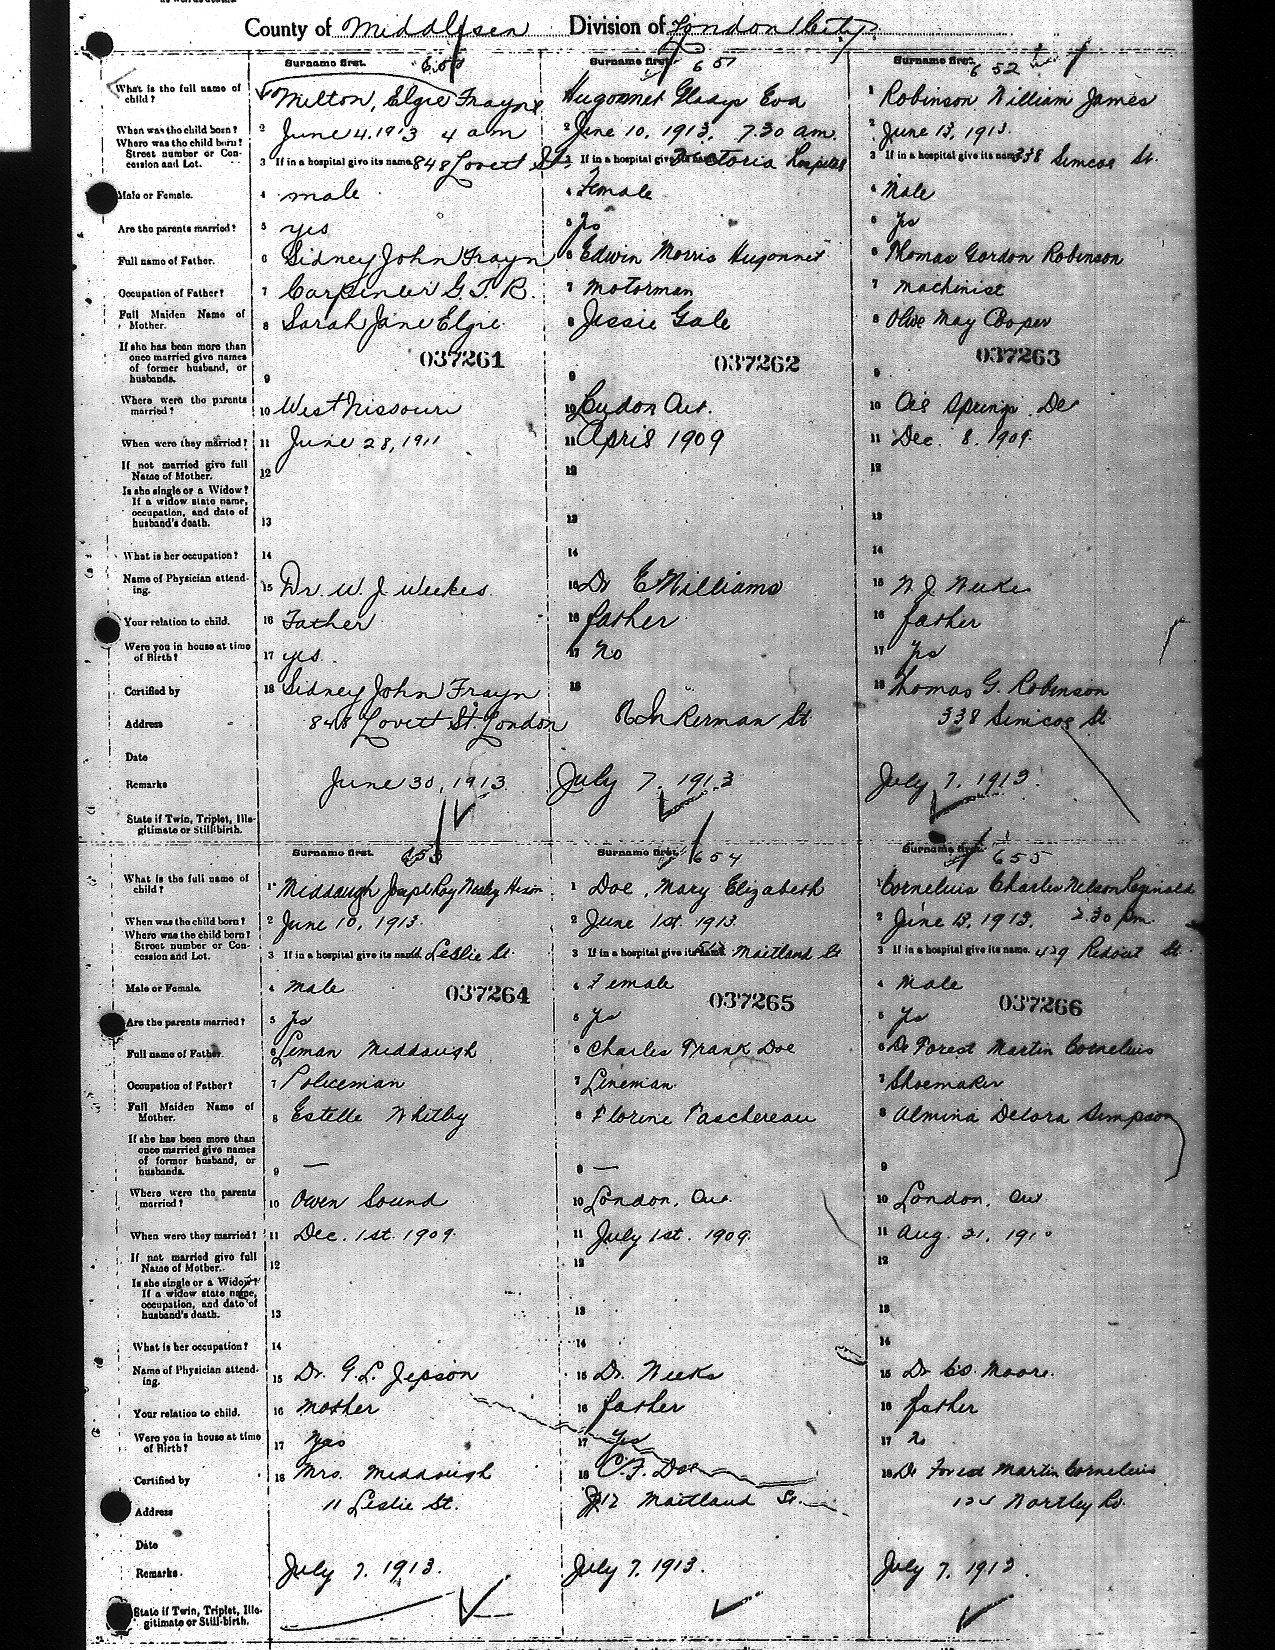 County of Middlesex Division of London City
Surname first. 650 Surname first. 651 Surname first. 652
What is the full name of child? 1 Milton, Elgie Frayne 1 Hugonnet Gladys Eva 1 Robinson William James
When was the child born? 2 June 4. 1913 4 am 2 June 10, 1913. 7.30 am. 2 June 13, 1913.
Where was the child born? Street number or Concession and Lot. 3 If in a hospital give its name. 848 Lovett St. 3 If in a hospital give its name. Victoria Hospital 3 If in a hospital give its name. 338 Simcoe St.
Male or Female. 4 male 4 Female 4 Male
Are the parents married? 5 yes 5 yes 5 yes
Full name of Father. 6 Sidney John Frayn 6 Edwin Morris Hugonnet 6 Thomas Gordon Robinson
Occupation of Father? 7 Carpenter G. T. R. 7 Motorman 7 Machinist
Full Maiden Name of Mother. 8 Sarah Jane Elgie 8 Jessie Gale 8 Olive May Cooper
037261 037262 037263
If she has been more than once married give names of former husband, or husbands. 9 9 9
Where were the parents married? 10 West Nissouri 10 London Ont. 10 Oil Springs
When were they married? 11 June 28, 1911 11 April 1909 11 Dec. 8. 1909.
If not married give full Name of Mother. 12 12 12
Is she single or a Widow? If a widow state name, occupation, and date of husband's death. 13 13 13
What is her occupation? 14 14 14
Name of Physician attending. 15 Dr. W. J. Weekes. 15 Dr Williams 15 W J Weekes
Your relation to child. 16 Father 16 father 16 father
Were you in house at time of Birth? 17 yes. 17 No 17 Yes
Certified by 18 Sidney John Frayn 18 18 Thomas G. Robinson
Address 848 Lovett St. London Inkerman St 338 Simcoe St.
Date
Remarks June 30, 1913. July 7. 1913 July 7. 1913.
State if Twin, Triplet, Illegitimate or Still-birth.
Surname first. 653 Surname first. 654 Surname first. 655
What is the full name of child? 1 Middaugh Joseph Roy 1 Doe, Mary Elizabeth 1 Cornelius Charles Nelson Reginald
When was the child born? 2 June 10, 1913. 2 June 1st. 1913 2 June 13, 1913. 2.30 pm.
Where was the child born? Street number or Concession and Lot. 3 If in a hospital give its name. Leslie St. 3 If in a hospital give its name. Maitland St 3 If in a hospital give its name. 429 Ridout St.
Male or Female. 4 Male 4 Female 4 Male
037264 037265 037266
Are the parents married? 5 yes 5 yes 5 yes
Full name of Father. 6 Leman Middaugh 6 Charles Frank Doe 6 De Forest Martin Cornelius
Occupation of Father? 7 Policeman 7 Lineman. 7 Shoemaker
Full Maiden Name of Mother. 8 Estelle Whitby 8 Florine Taschereau 8 Almina Delora Simpson
If she has been more than once married give names of former husband, or husbands. 9 — 9 — 9
Where were the parents married? 10 Owen Sound 10 London, Ont. 10 London, Ont
When were they married? 11 Dec. 1st. 1909. 11 July 1st. 1909. 11 Aug. 21, 1910
If not married give full Name of Mother. 12 12 12
Is she single or a Widow? If a widow state name, occupation, and date of husband's death. 13 13 13
What is her occupation? 14 14 14
Name of Physician attending. 15 Dr. G. L. Jepson 15 Dr. Weeks 15 Dr Moore.
Your relation to child. 16 Mother 16 father 16 father
Were you in house at time of Birth? 17 Yes 17 Yes 17
Certified by 18 Mrs. Middaugh 18 C. F. Doe 18 De Forest Martin Cornelius
Address 11 Leslie St. Maitland St. Wortley Rd.
Date
Remarks. July 7. 1913. July 7. 1913. July 7, 1913.
State if Twin, Triplet, Illegitimate or Still-birth.